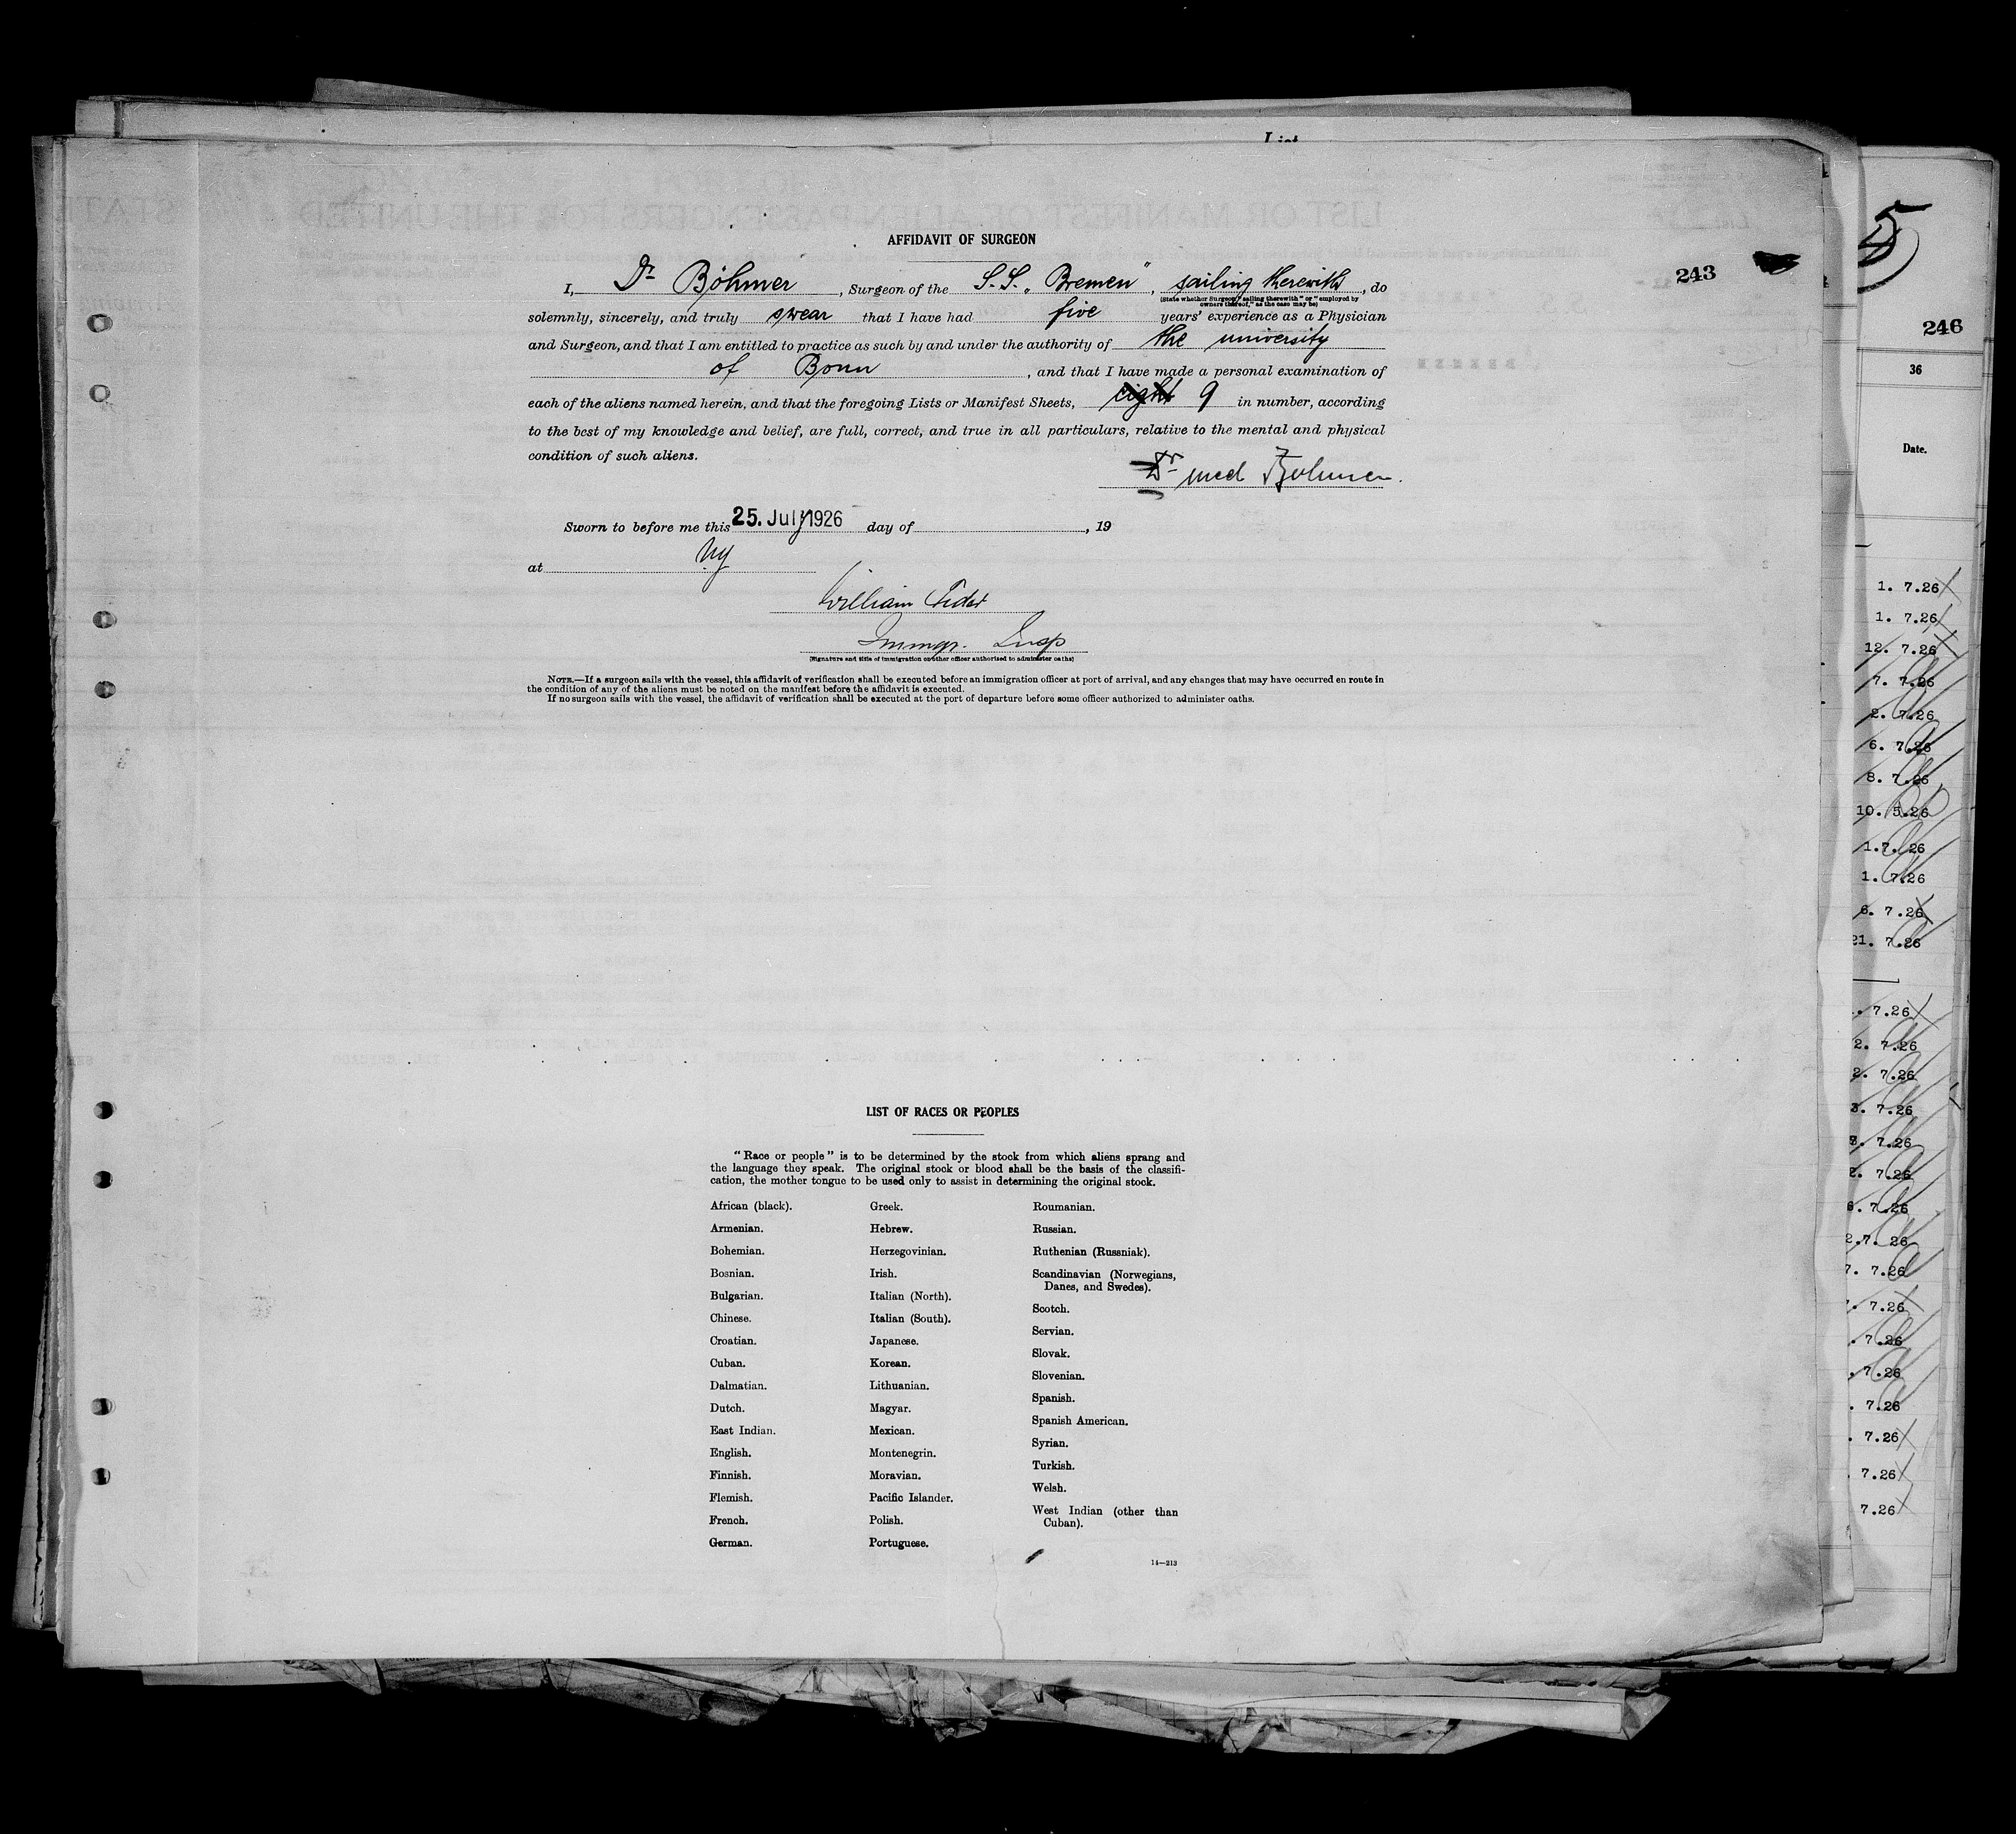 List
AFFIDAVIT OF SURGEON
243
I, Dr Böhmer, Surgeon of the S.S. „Bremen", sailing therewith, do
(State whether Surgeon "sailing therewith" or "employed by
owners thereof," as the case may be)
solemnly, sincerely, and truly swear that I have had five years' experience as a Physician
and Surgeon, and that I am entitled to practice as such by and under the authority of the university
of Bonn, and that I have made a personal examination of
each of the aliens named herein, and that the foregoing Lists or Manifest Sheets, eight 9 in number, according
to the best of my knowledge and belief, are full, correct, and true in all particulars, relative to the mental and physical
condition of such aliens.
Dr med Böhmer.
Sworn to before me this 25. July 1926 day of , 19
at NY
William
Immgr. Insp
(Signature and title of immigration or other officer authorized to administer oaths)
NOTE.—If a surgeon sails with the vessel, this affidavit of verification shall be executed before an immigration officer at port of arrival, and any changes that may have occurred en route in
the condition of any of the aliens must be noted on the manifest before the affidavit is executed.
If no surgeon sails with the vessel, the affidavit of verification shall be executed at the port of departure before some officer authorized to administer oaths.
LIST OF RACES OR PEOPLES
"Race or people" is to be determined by the stock from which aliens sprang and
the language they speak. The original stock or blood shall be the basis of the classifi-
cation, the mother tongue to be used only to assist in determining the original stock.
African (black).
Armenian.
Bohemian.
Bosnian.
Bulgarian.
Chinese.
Croatian.
Cuban.
Dalmatian.
Dutch.
East Indian.
English.
Finnish.
Flemish.
French.
German.
Greek.
Hebrew.
Herzegovinian.
Irish.
Italian (North).
Italian (South).
Japanese.
Korean.
Lithuanian.
Magyar.
Mexican.
Montenegrin.
Moravian.
Pacific Islander.
Polish.
Portuguese.
Roumanian.
Russian.
Ruthenian (Russniak).
Scandinavian (Norwegians,
Danes, and Swedes).
Scotch.
Servian.
Slovak.
Slovenian.
Spanish.
Spanish American.
Syrian.
Turkish.
Welsh.
West Indian (other than
Cuban).
14—213
5
246
36
Date.
1. 7.26
1. 7.26
12. 7.26
7. 7.26
2. 7.26
6. 7.26
8. 7.26
10. 5.26
1.7. 26
1. 7.26
6. 7.26
21. 7.26
. 7.26
2. 7.26
2. 7.26
3. 7.26
. 7.26
2. 7.26
6. 7.26
2.7. 26
7. 7.26
. 7.26
. 7.26
. 7.26
. 7.26
. 7.26
7.26
7.26